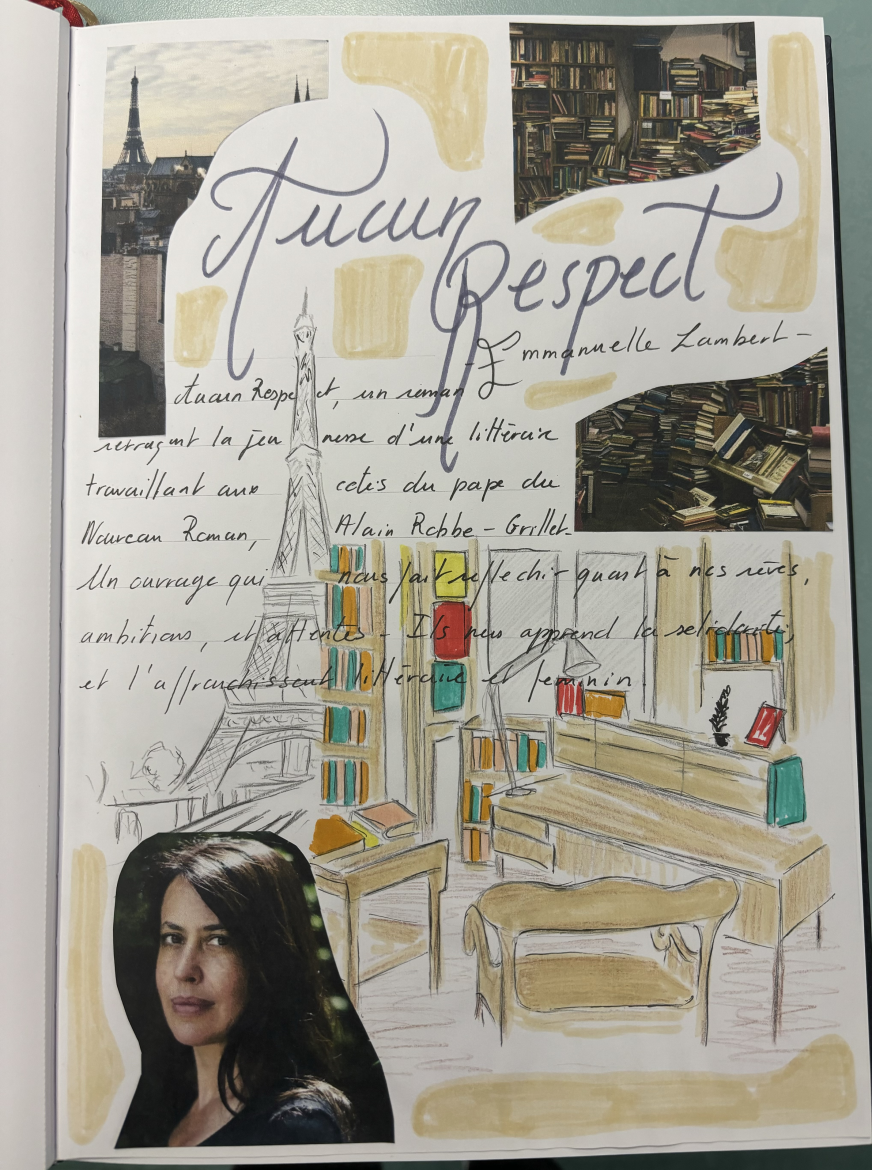 Aucun
Respect
- Emmanuelle Lambert -
Aucun Respect, un roman
retraçant la jeunesse d'une littéraire
travaillant aux cotés du pape du
Nouveau Roman, Alain Robbe-Grillet.
Un ouvrage qui nous fait réflechir quant à nos rêves,
ambitions, et attentes - Ils nous apprend la solidarité,
et l'affranchissent littéraire et féminin.